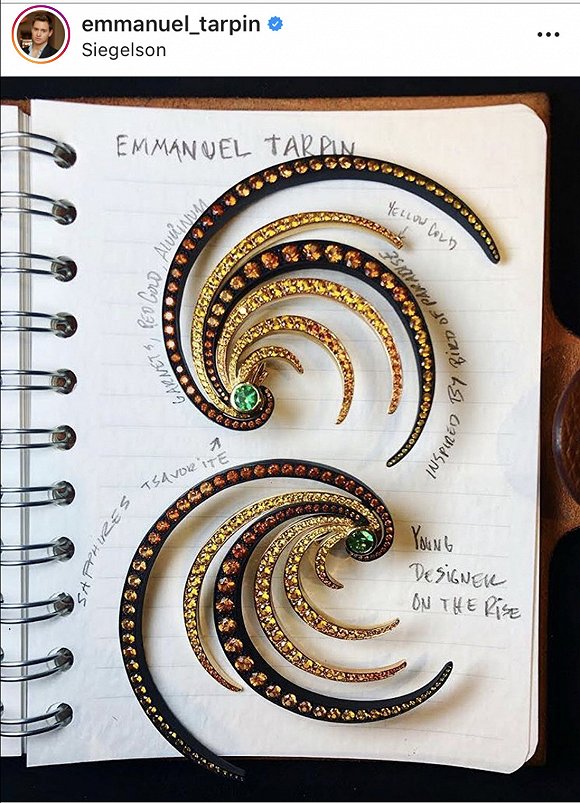 emmanuel_tarpin
Siegelson
EMMANUEL TARPIN
YELLOW GOLD
GARNETS, RED GOLD ALUMINUM
INSPIRED BY BIRD OF PARADISE
TSAVORITE
SAPPHIRES
YOUNG
DESIGNER
ON THE RISE